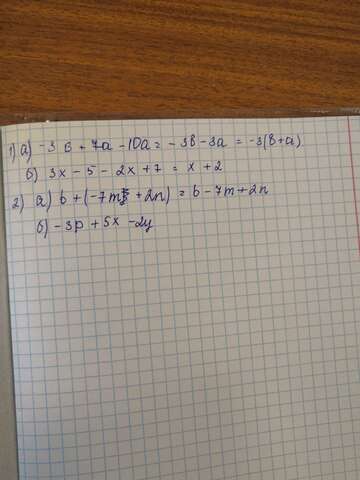 1) а) -3в + 7а - 10а = - 3в - 3а = -3(в+а)
б) 3x - 5 - 2x + 7 = x + 2
2) а) b + (-7m + 2n) = b - 7m + 2n
б) - 3p + 5x - 2y